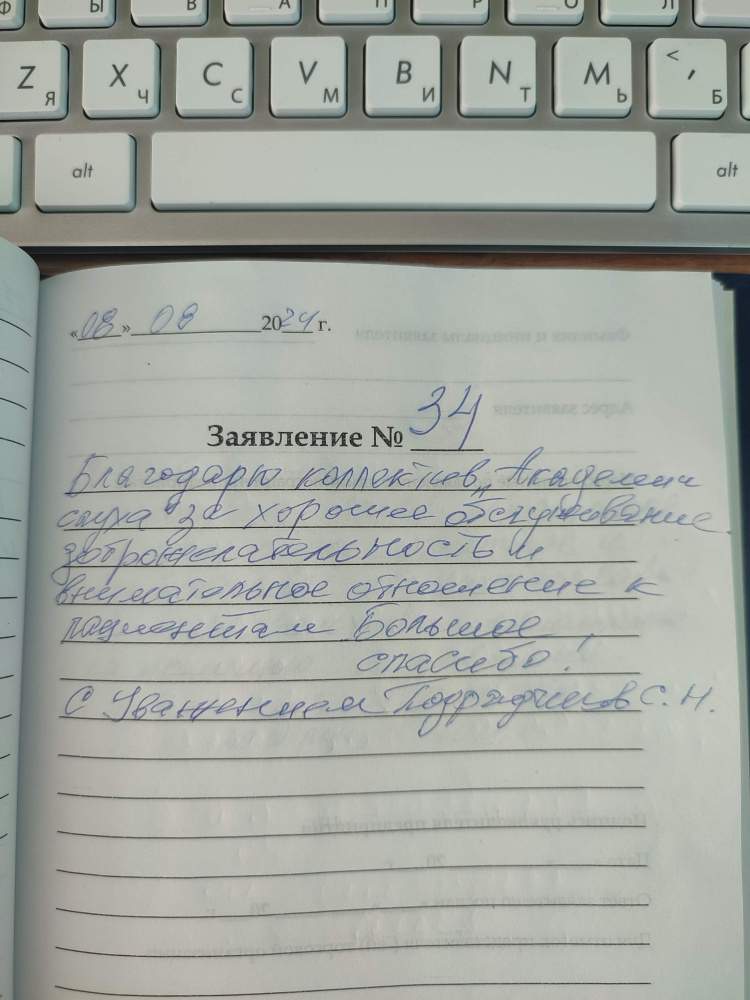 Ф Ы В А П Р О Л
Z Я X Ч C С V М B И N Т M Ь < , Б
alt alt
«08» 08 2024 г.
Заявление № 34
Благодарю коллектив „Академии
слуха" за хорошее обслуживание
доброжелательность и
внимательное отношение к
пациентам Большое
спасибо!
С Уважением Подрядчиков С. Н.